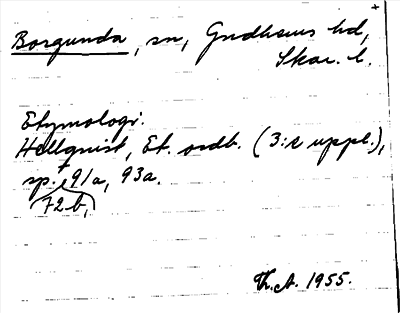 Borgunda, sn, Gudhems hd,
Skar. l.
Etymologi.
Hellquist, Et. ordb. (3:e uppl.),
sp. 91a, 93a.
72b,
Th.A. 1955.